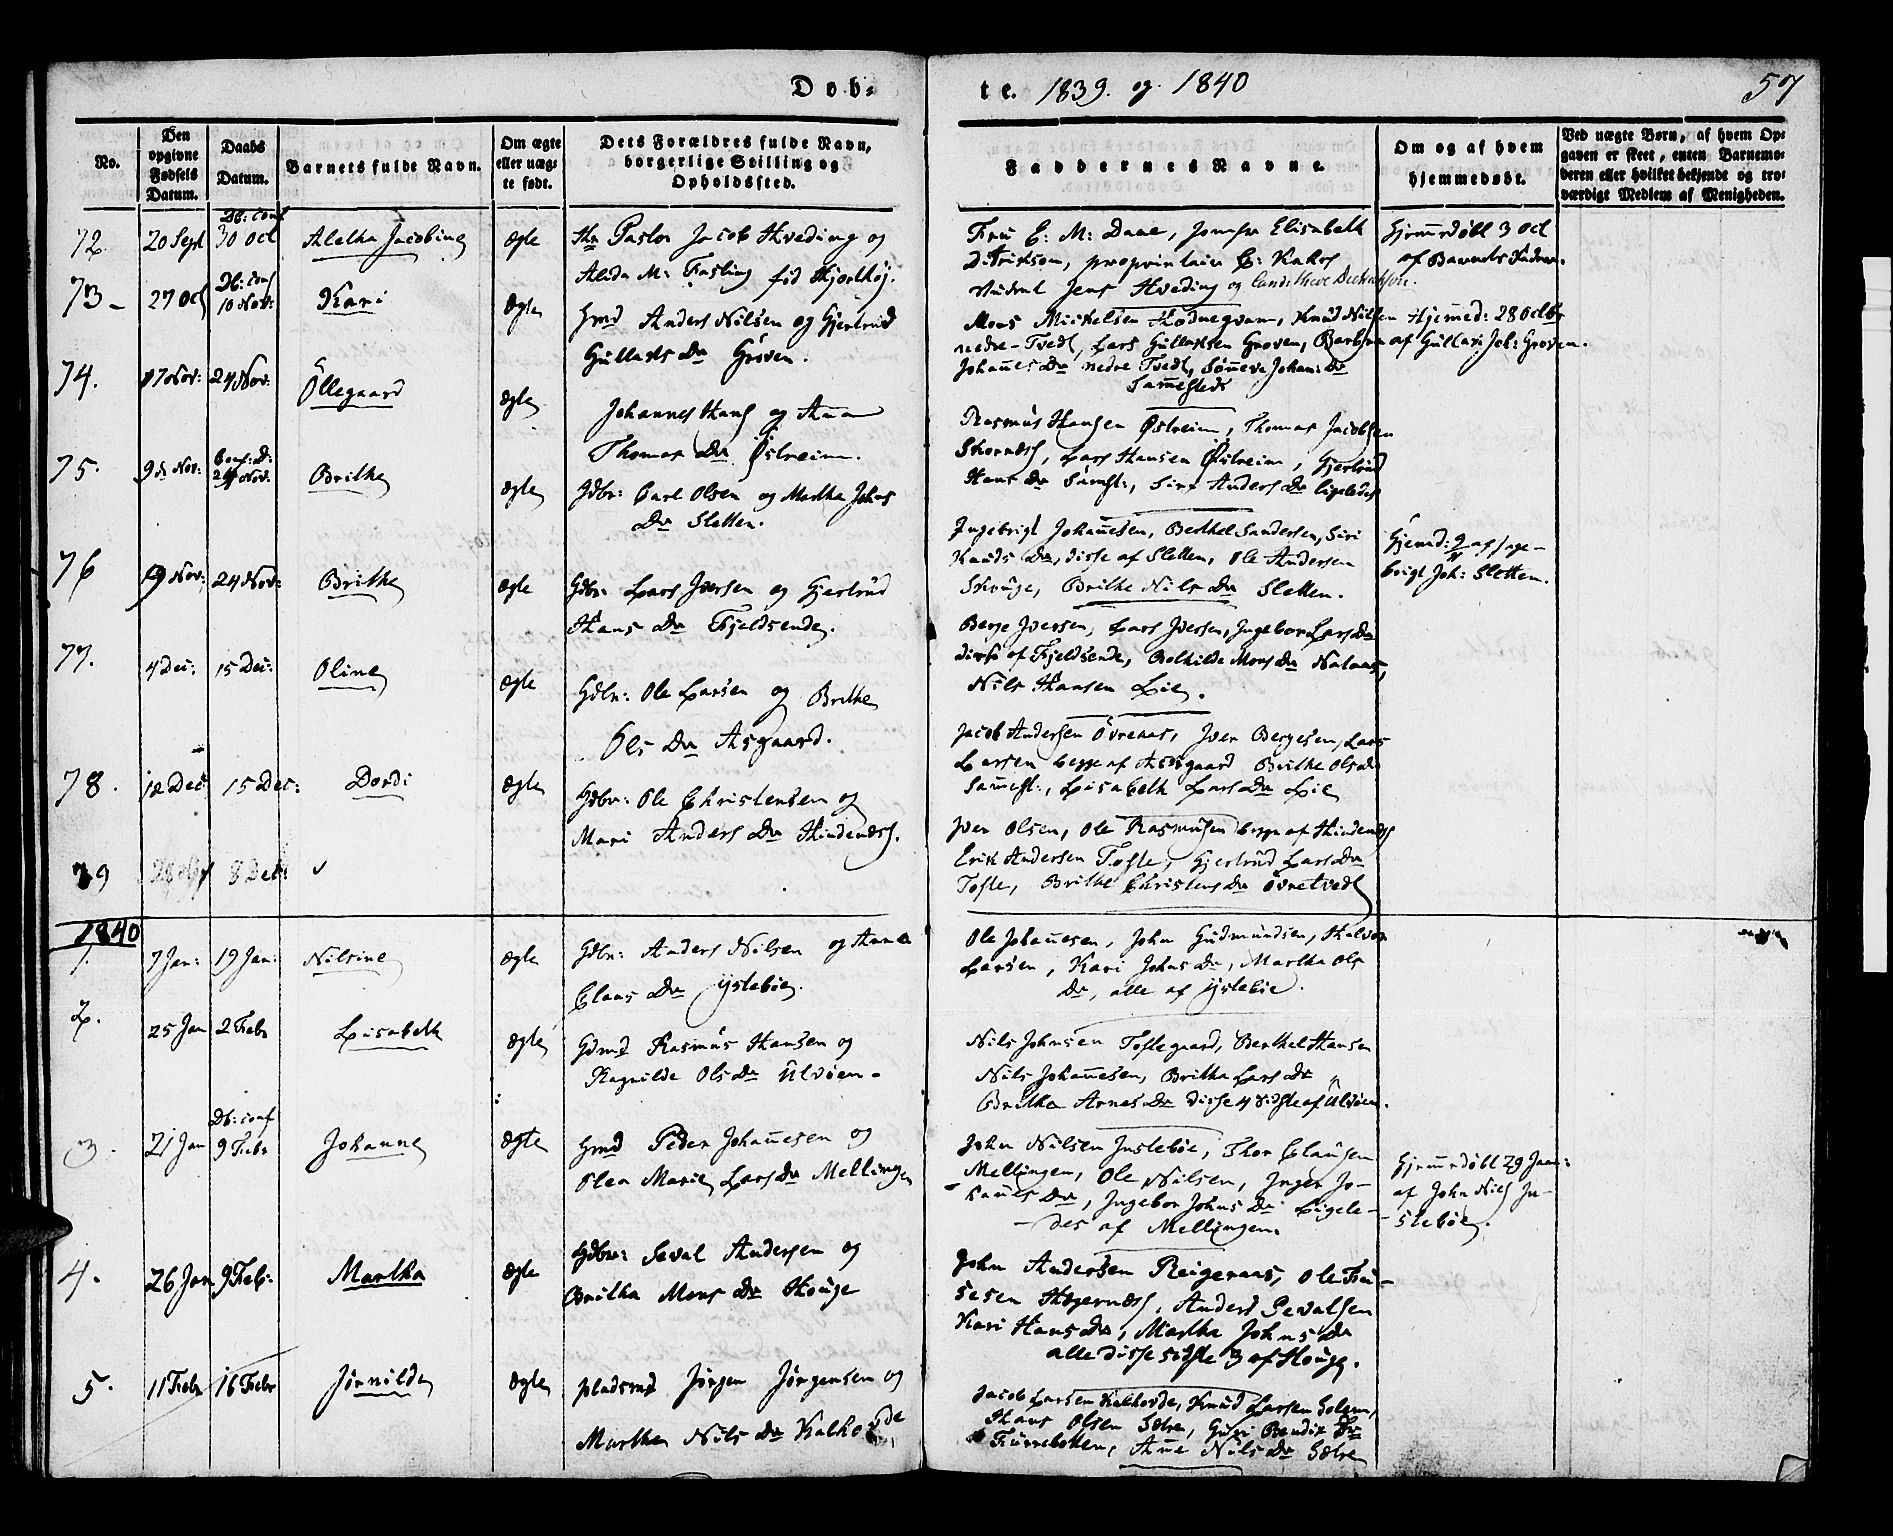 Døb-
te. 1839. og. 1840
57
No.
Den opgivne Fødsels Datum.
Daabs Datum.
Barnets fulde Navn.
Om ægte eller uægte født.
Dets Forældres fulde Navn, borgerlige Stilling og Opholdssted.
Faddernes Navne.
Om og af hvem hjemmedøbt.
Ved uægte Børn, af hvem Opgaven er skeet, enten Barnemoderen eller hvilket bekjendt og troværdigt Medlem af Menigheden.
72. 20 Sept Db: conf 30 Oct Aletha Jacobine ægte
Hr Pastor Jacob Hveding og
Alida M: Fasting fød Hjorthøj.
Fru E: M: Daae, Jomfru Elisabeth
Ditrikson, proprietair
Student Jens Hveding og
Hjemmedøbt 3 Oct
af Barnets Fader.
73- 27 Oct Db: conf 10 Nov: Kari Ægte
Gmd Anders Nilsen og Gjertrud
Gullachs Dr Groven.
Mons Mickelsen Hodnegvam, Knud Nilsen
nedre-Tvedt, Lars Gullachsen Groven, Barbro
Johannes Dr nedre Tvedt, Sønneva Johan: Dr
Sammesteds
Hjemmed: 28 Octbr
af Gullach Joh: Groven.
74. 17 Nov: 24 Nov: Ollegaard ægte
Johannes Hans og Anna
Thomas Dr Østreim.
Rasmus Hansen Østreim, Thomas Jacobsen
Skornæs, Lars Hansen Østreim, Gjertrud
Hans Dr Samst:, Siri Anders Dr ligeledes
75. 9 Nov: Conf: D: 24 Nov. Brithe ægte
Gdbr: Carl Olsen og Martha Johns
Dr Sletten.
Ingebrigt Johannesen, Berthel Sandersen, Siri
Knuds Dr, disse af Sletten, Ole Andersen
Skouge, Brithe Nils Dr Sletten.
Hjemd: 9/11 af Inge-
brigt Joh: Sletten.
76 19 Nov: 24 Nov: Brithe ægte
Gdbr: Lars Iversen og Gjertrud
Hans Dr Fjeldsende.
Berge Iversen, Lars Iversen, Ingebor Lars Dr
disse af Fjeldsende, Bothilde Mons Dr Nataas,
Nils Hansen Lie.
77. 4 Dec: 15 Dec: Oline ægte
Gdbr: Ole Larsen og Brithe
Ols Dr Asgaard.
Jacob Andersen Øvreaas, Iver Bergesen, Lars
Larsen begge af Asgaard Brithe Ols Dr
Sammest:, Lisabeth Lars Dr Lie
78. 12 Dec 15 Dec: Dordi ægte
Gdbr: Ole Christensen og
Mari Anders Dr Hindenæs.
Iver Olsen, Ole Rasmusen begge af Hindenæs
Erik Andersen Tofte, Gjertrud Lars Dr
Tofte, Brithe Christens Dr Øvretvedt
79 8 Dec:
1840
1. 7 Jan: 19 Jan: Nilsine ægte
Gdbr: Anders Nilsen og Anna
Claus Dr Ystebøe.
Ole Johannesen, John Gudmundsen, Halvor
Larsen, Kari Johns Dr, Martha Ols
Dr, alle af Ystebøe.
2. 25 Jan 2 Febr Lisabeth ægte
Gdmd Rasmus Hansen og
Ragnilde Ols Dr Ulvøen-
Nils Johnsen Toftegaard, Berthel Hansen
Nils Johannesen, Britha Lars Dr
Britha Arnes Dr disse 4 sidste af Ulvøen.
3. 21 Jan Db: conf 9 Febr Johanne ægte
Gmd Peder Johannesen og
Olea Marie Lars Dr Mellinge
John Nilsen Instebøe, Thor Clausen
Mellingen, Ole Nilsen, Inger Jo-
hannes Dr, Ingebor Johns Dr Ligele-
des af Mellingen.
Hjemmedøbt 29 Jan:
af John Niels In-
stebøe.
4. 26 Jan 9 Feb: Martha ægte
Gdbr: Seval Andersen og
Britha Mons Dr Houge
John Andersen Reigeraas, Ole Fru-
sesen Hagernæs, Anders Sevalsen
Kari Hans Dr, Martha Johns Dr
alle disse sidste 3 af Houge.
5. 11 Febr 16 Febr Jørnilde ægte
pladsmd Jørgen Jørgensen og
Marthe Nils Dr Kalhovde
Jacob Larsen Kalhovde, Knud Larsen Solem,
Hans Olsen Sætre, Guri Bendix Dr
Furrebotten, Ane Nils Dr Sætre